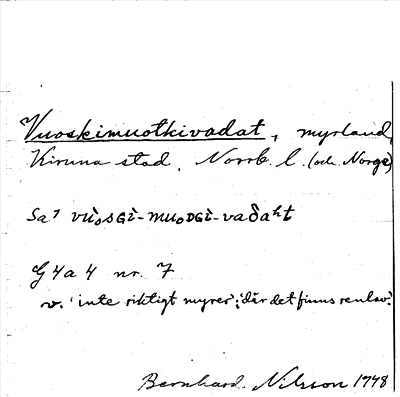 Vuoskimuotkivadat, myrland,
Kiruna stad. Norrb. l. (och Norge)
Sa⁷ vùₒsGi-muₒDGi-vaδaht
G4a4 nr. 7
v. 'inte riktigt myrer'; 'där det finns renlav'.
Bernhard Nilsson 1948